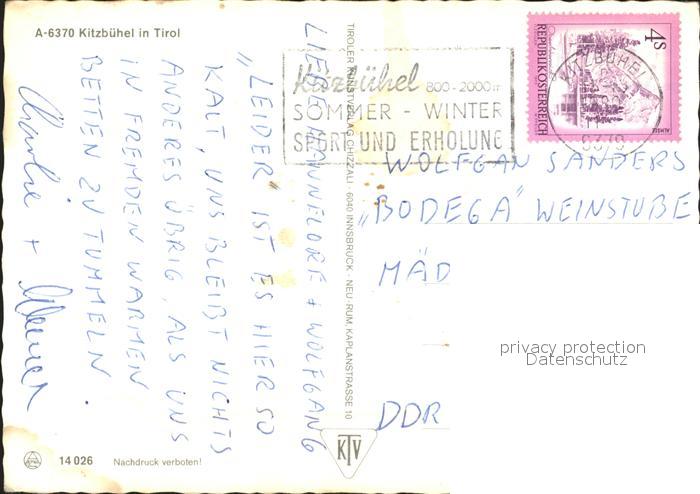 A-6370 Kitzbühel in Tirol
LIEBE HANNELORE + WOLFGANG
„LEIDER" IST ES HIER SO
KALT, UNS BLEIBT NICHTS
ANDERES ÜBRIG, ALS UNS
IN FREMDEN WARMEN
BETTEN ZU TUMMELN.
+ Werner
14 026 Nachdruck verboten!
TIROLER KUNSTVERLAG CHIZZALI · 6040 INNSBRUCK - NEU-RUM, KAPLANSTRASSE 10
KTV
Kitzbühel 800-2000m
SOMMER - WINTER
SPORT UND ERHOLUNG
4S
REPUBLIK ÖSTERREICH
ALMSEE
KITZBÜHEL
6370
WOLFGAN SANDERS
„BODEGA" WEINSTUBE
MÄD
DDR
privacy protection
Datenschutz